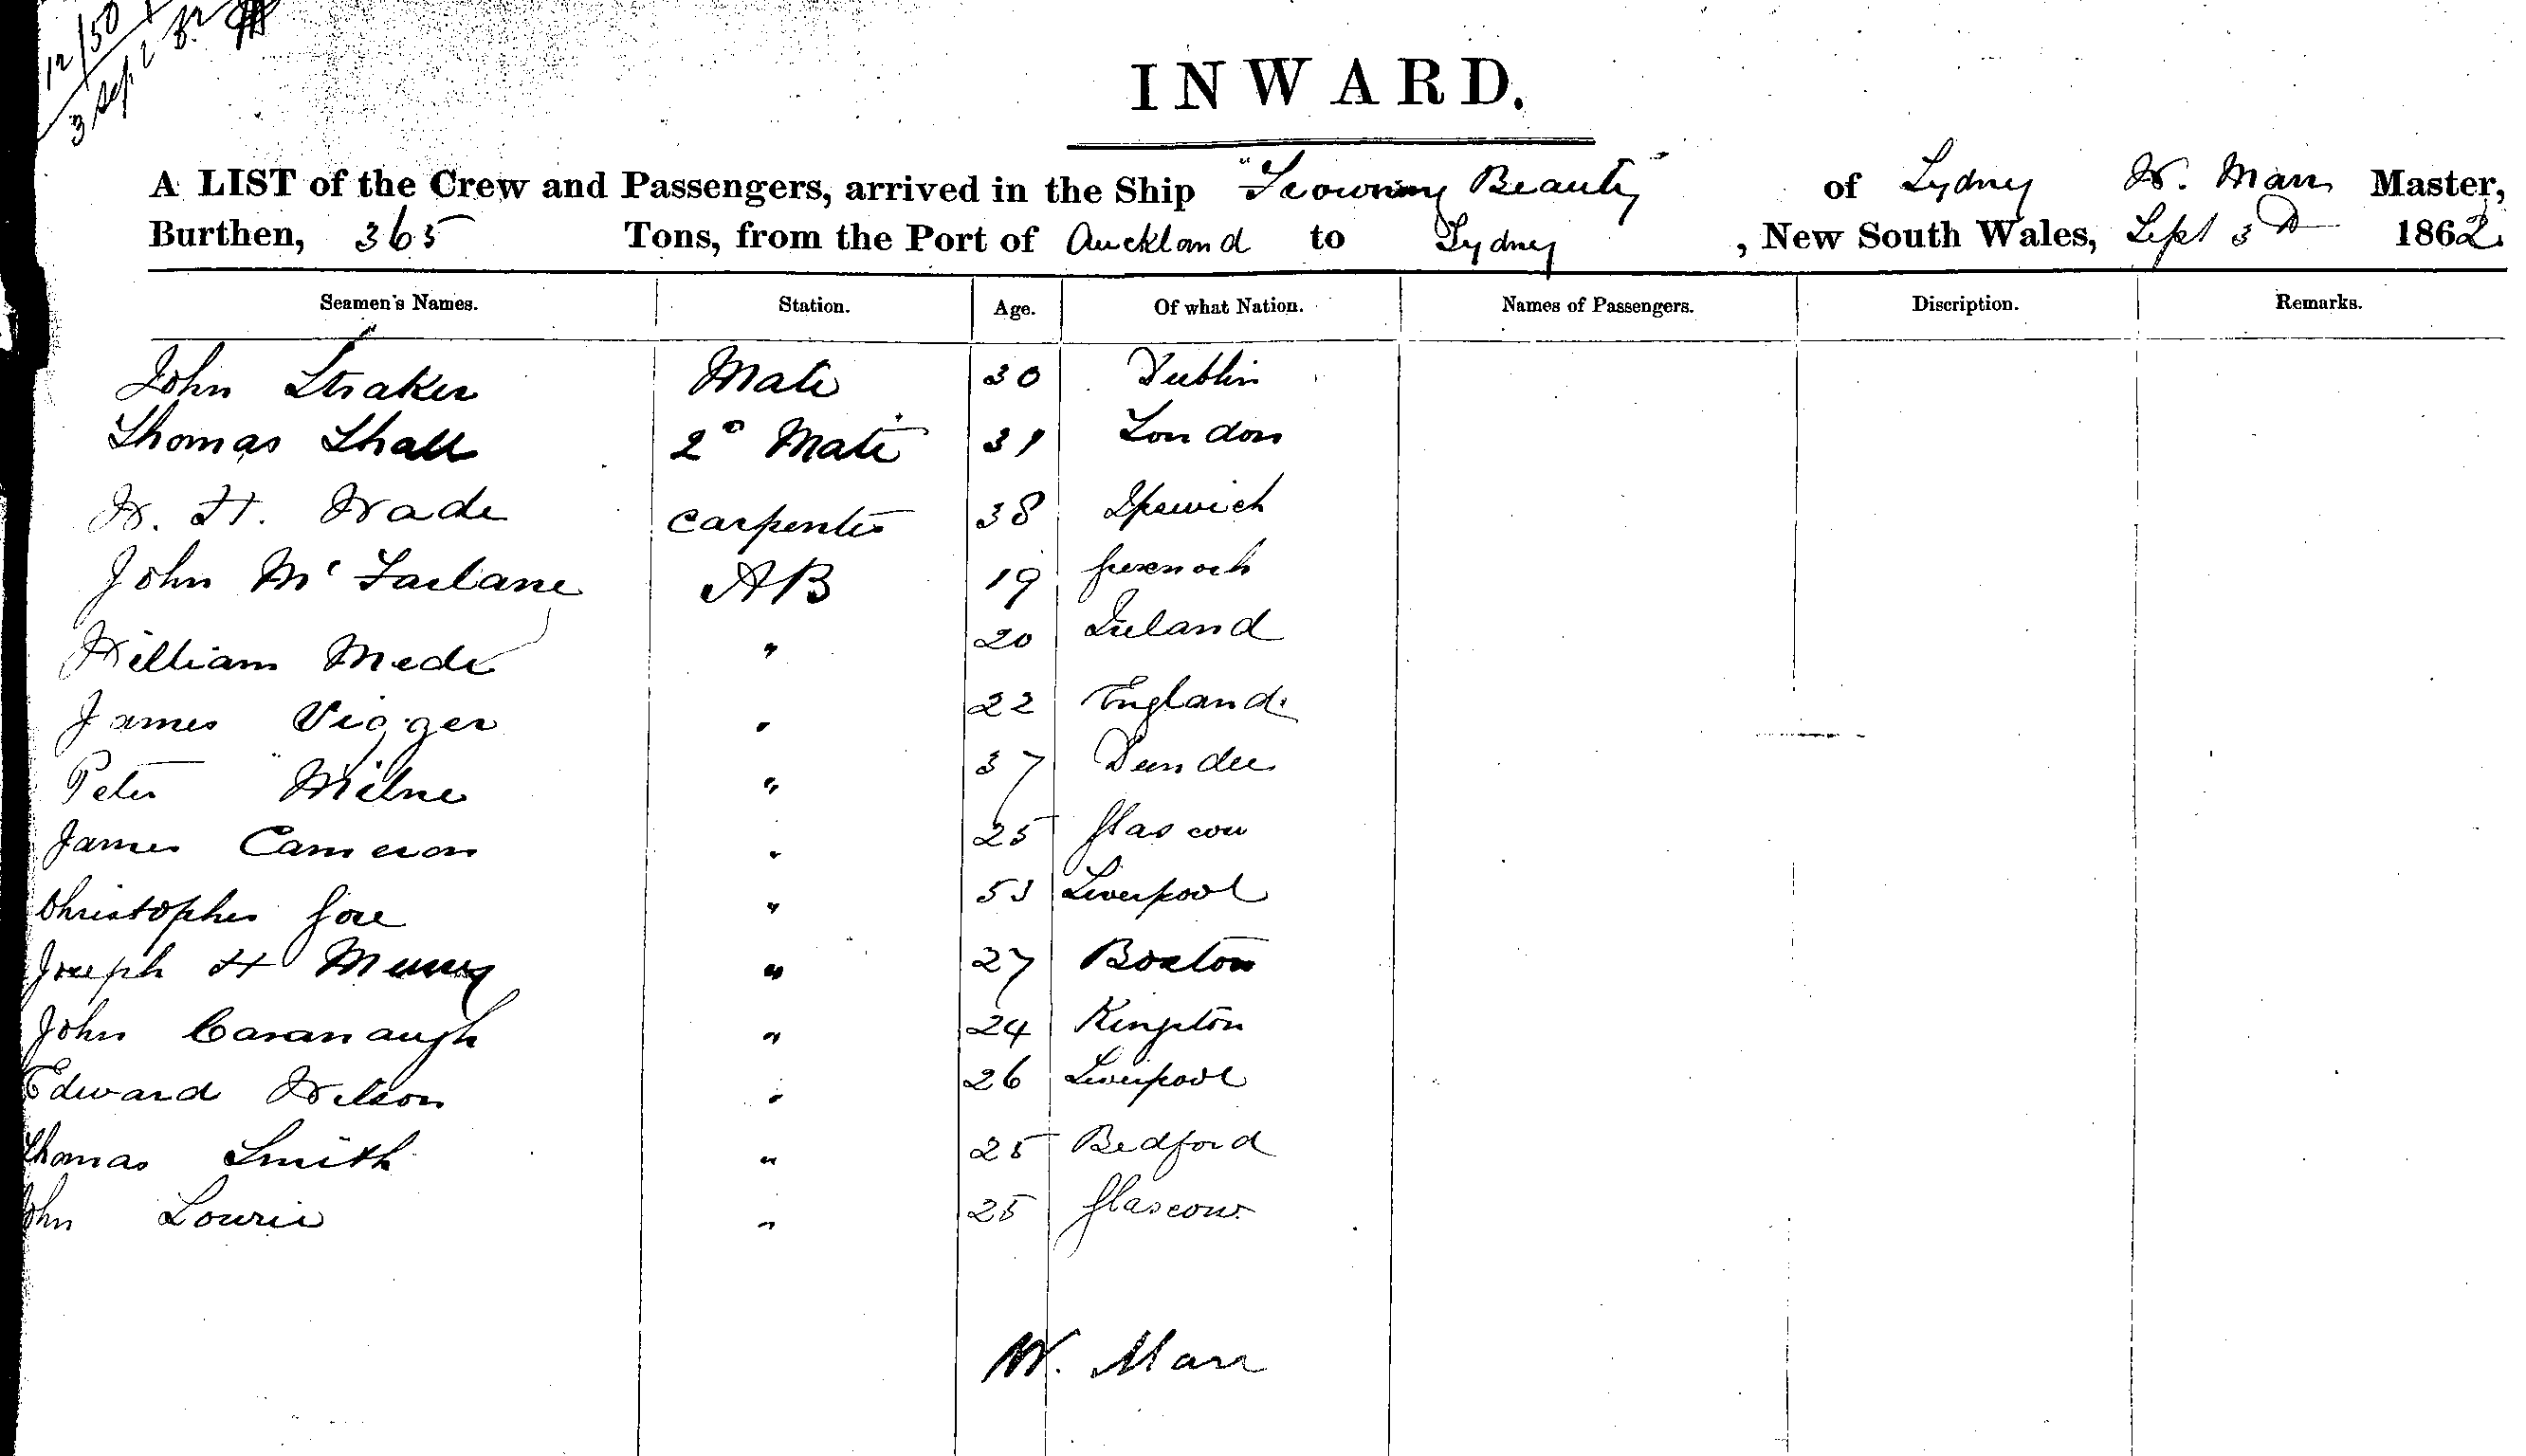 12/50
3 Sept 62
INWARD.
A LIST of the Crew and Passengers, arrived in the Ship "Frowning Beauty" of Sydney W. Marr Master,
Burthen, 365 Tons, from the Port of Auckland to Sydney, New South Wales, Sept 3rd 1862.
Seamen's Names. Station. Age. Of what Nation. Names of Passengers. Discription. Remarks.
John Straker Mate 30 Dublin
Thomas Shall 2d Mate 31 London
W. H. Wade Carpenter 38 Ipswich
John McFarlane AB 19 Greenock
William Mede " 20 Ireland
James Vigger " 22 England
Peter Milne " 37 Dundee
James Cameron " 25 Glascow
Christopher Gore " 53 Liverpool
Joseph H " 27 Boston
John Cavanaugh " 24 Kingston
Edward Wilson " 26 Liverpool
Thomas Smith " 25 Bedford
John Lowrie " 25 Glascow
W. Marr